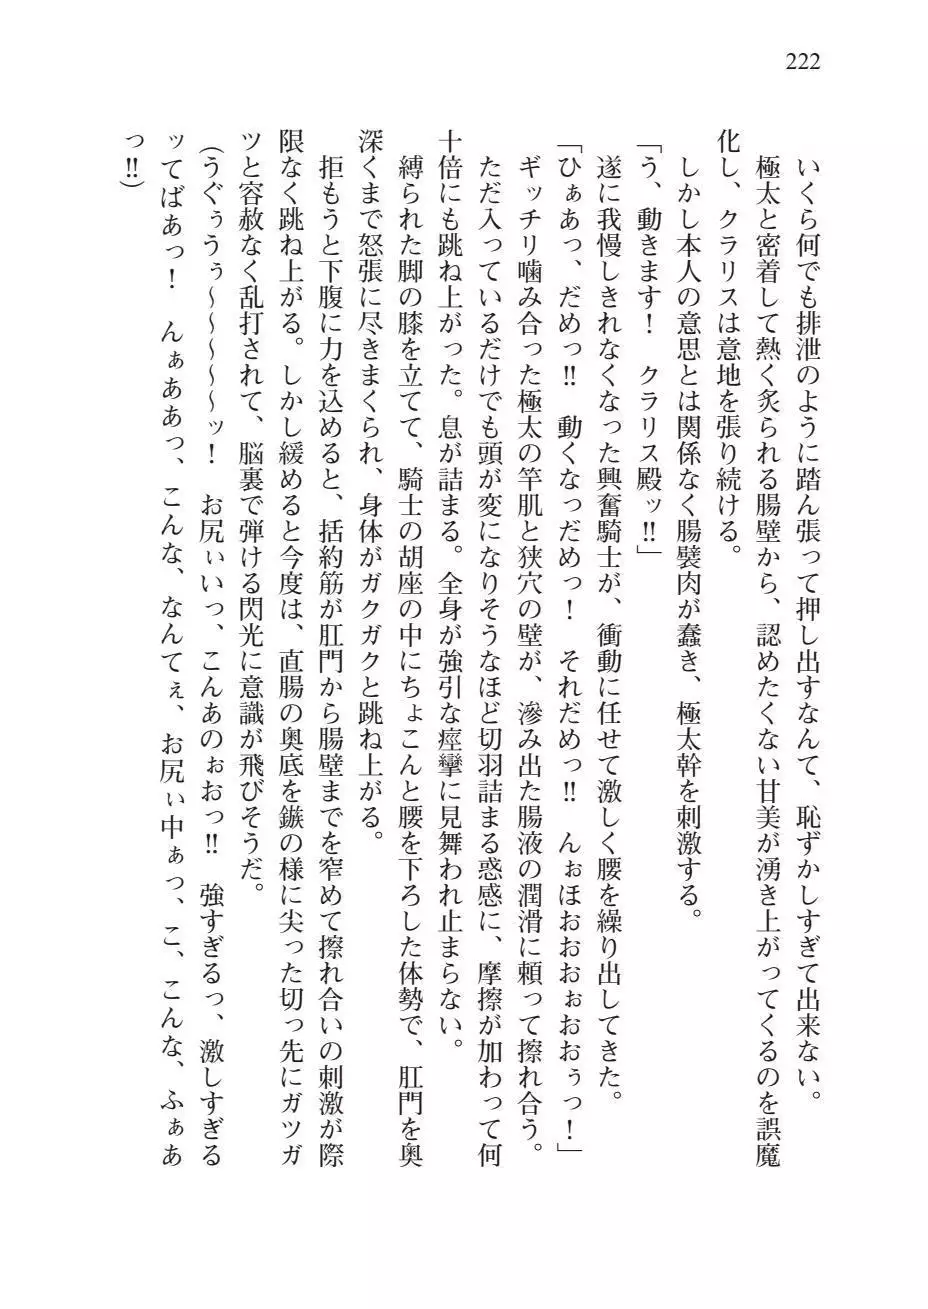 222
いくら何でも排泄のように踏ん張って押し出すなんて、恥ずかしすぎて出来ない。
極太と密着して熱く炙られる腸壁から、認めたくない甘美が湧き上がってくるのを誤魔
化し、クラリスは意地を張り続ける。
しかし本人の意思とは関係なく腸襞肉が蠢き、極太幹を刺激する。
「う、動きます！　クラリス殿ッ‼」
遂に我慢しきれなくなった興奮騎士が、衝動に任せて激しく腰を繰り出してきた。
「ひぁあっ、だめっ‼　動くなっだめっ！　それだめっ‼　んぉほおおおぉおおぅっ！」
ギッチリ噛み合った極太の竿肌と狭穴の壁が、滲み出た腸液の潤滑に頼って擦れ合う。
ただ入っているだけでも頭が変になりそうなほど切羽詰まる惑感に、摩擦が加わって何
十倍にも跳ね上がった。息が詰まる。全身が強引な痙攣に見舞われ止まらない。
縛られた脚の膝を立てて、騎士の胡座の中にちょこんと腰を下ろした体勢で、肛門を奥
深くまで怒張に尽きまくられ、身体がガクガクと跳ね上がる。
拒もうと下腹に力を込めると、括約筋が肛門から腸壁までを窄めて擦れ合いの刺激が際
限なく跳ね上がる。しかし緩めると今度は、直腸の奥底を鏃の様に尖った切っ先にガツガ
ツと容赦なく乱打されて、脳裏で弾ける閃光に意識が飛びそうだ。
（うぐぅうぅ～～～～～ッ！　お尻ぃいっ、こんあのぉおっ‼　強すぎるっ、激しすぎる
ッてばあっ！　んぁああっ、こんな、なんてぇ、お尻ぃ中ぁっ、こ、こんな、ふぁあ
っ‼）